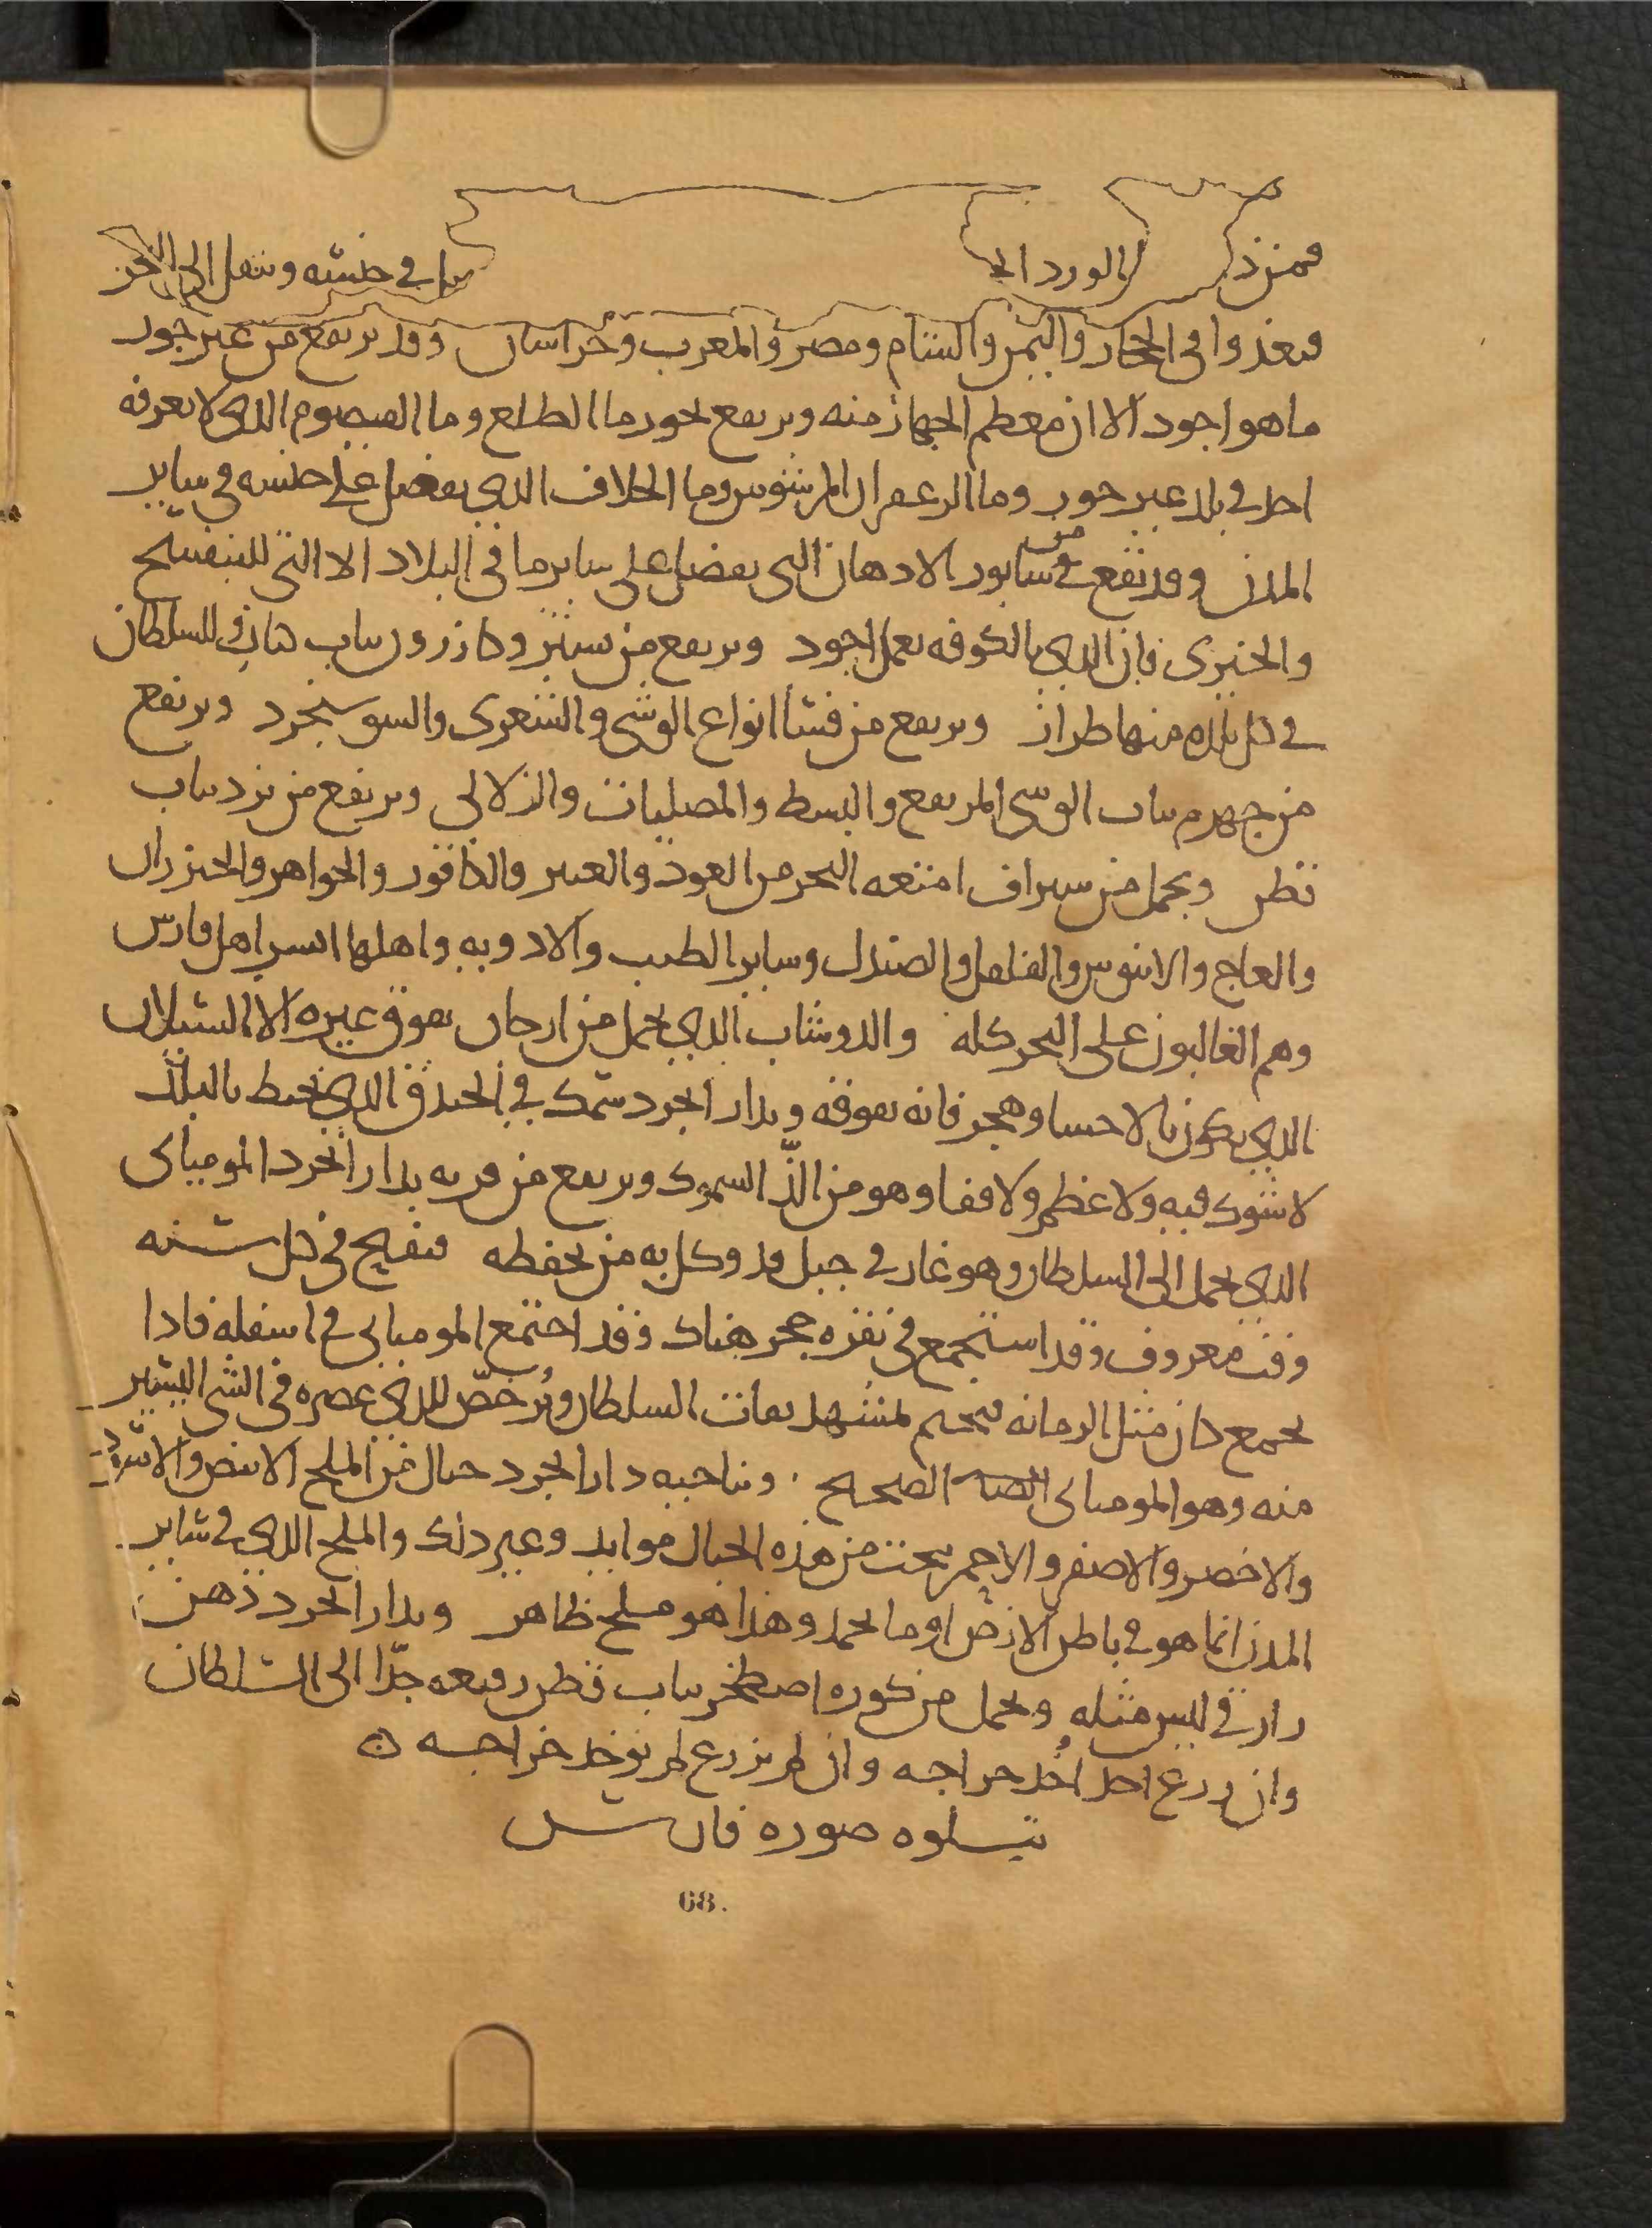 فمن ذ الورد الجا في جنسه وينقل الى البحر
فيغدوا في الحجاز واليمن والشام ومصر والمغرب وخراسان وقد يرتفع من غير جور
ما هو اجود الا ان معظم الجهاز منه ويرتفع بجور ما الطلع وما القيصوم الذي لا يعرفه
احد في بلد غير جور وما الزعفران المرسوس وما الخلاف الذي يفضل على جنسه في ساير
المدن ويرتفع من سابور الادهان التي يفضل على ساير ما في البلاد الا التي للبنفسج
والخيري فان الذي بالكوفه يعمل اجود ويرتفع من سينيز وكازرون ثياب للسلطان
في كل بلده منها طراز ويرتفع من فسا انواع الوشي والشعري والسوسنجرد ويرتفع
من جهرم ثياب الوشي المرتفع والبسط والمصليات والزلالي ويرتفع من يزد ثياب
قطن ويحمل من سيراف امتعه البحر من العود والعنبر والكافور والجواهر والخيزران
والعاج والابنوس والفلفل والصندل وساير الطيب والادويه واهلها ايسر اهل فارس
وهم الغالبون على البحر كله والدوشاب الذي يحمل من ارجان يفوق غيره الا السيلان
الذي يكون بالاحسا وهجر فانه يفوقه وبدارابجرد سمك في الخندق الذي يحيط بالبلد
لا شوك فيه ولا عظم ولا فقا وهو من الذّ السموك ويرتفع من قريه بدارابجرد الموميای
الذي يحمل الى السلطان وهو غار في جبل قد وكل به من يحفظه فيفتح في كل سنه
وقت معروف وقد استجمع في نقره حجر هناك وقد اجتمع الموميای في اسفله فاذا
يجمع كان مثل الرمانه فيختم بمشهد ثقات السلطان ويُرخصّ للذي عصره في الشي اليسير
منه وهو الموميای الصحيح وبناحيه دارابجرد جبال من الملح الابيض والاسود
والاخضر والاصفر والاحمر ينحت من هذه الجبال موايد وغير ذلك والملح الذي في ساير
المدن انما هو في باطن الارض او ما يجمد وهذا هو ملح ظاهر وبدارابجرد دهن
رازقي ليس مثله ويحمل من كوره اصطخر ثياب قطن رفيعه جدّا الى السلطان
وان زرع احد اُخذ خراجه وان لم يزرع لم يوخذ خراجه
يتلوه صوره فارس
68.